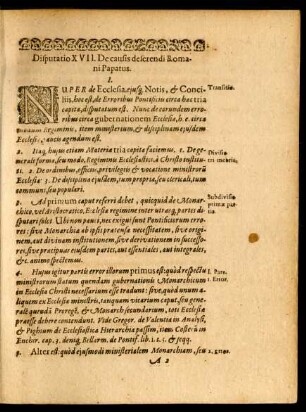 Disputatio XVII. De causis deserendi Roma-
ni Papatus.
I.
NUPER de Ecclesia, ejusq; Notis, & Conci-
liis, hoc est, de Erroribus Pontificiis circa hæc tria
capita, disputatum est. Nunc de eorundem erro-
ribus circa gubernationem Ecclesiæ, h. e. circa
Politicum Regiminis, item ministerium, & disciplinam ejusdem
Ecclesiæ, paucis agendum est.
Transitio.
2. Itaq; hujus etiam Materiæ tria capita faciemus. 1. De ge-
nerali forma, seu modo, Regiminis Ecclesiastici, à Christo institu-
ti. 2. De ordinibus, officiis, privilegiis & vocatione ministrorũ
Ecclesiæ. 3. De disciplina ejusdem, tum propria, seu clericali, tum
communi, seu populari.
Divisio
materiæ.
3. Ad primum caput referri debet, quicquid de Monar-
chico, vel Aristocratico, Ecclesiæ regimine inter utramq; partem
disputari solet. Ubi non pauci, nec exigui sunt Pontificiorum erro-
res: sive Monarchia ab ipsis prætensa necessitatem, sive origi-
nem, aut divinam institutionem, sive derivationem in successo-
res, præcipuas ejusdem partes, aut essentiales, aut integrales,
&, animo spectemus.
Subdivisio
primæ par-
tis.
4. Hujus igitur partis error illorum primus est: quòd respectu
ministrorum statum quendam gubernationis Monarchicum
in Ecclesia Christi necessarium esse tradunt: sive, quòd unum a-
liquem ex Ecclesiæ ministris, tanquam vicarium caput, seu gene-
ralẽ quendã Protegẽ, & Monarchã secundarium, toti Ecclesiæ
præesse debere contendunt. Vide Gregor. de Valentia in Analysi,
& Pighium de Ecclesiastica Hierarchia passim, item Costerū in
Enchir. cap. 3. deniq; Bellarm. de Pontif. lib. 1. c. 1. & seqq.
1. Pars.
1. Error.
5. Alter est: quòd ejusmodi ministerialem Monarchiam, seu
2. error.
A 2